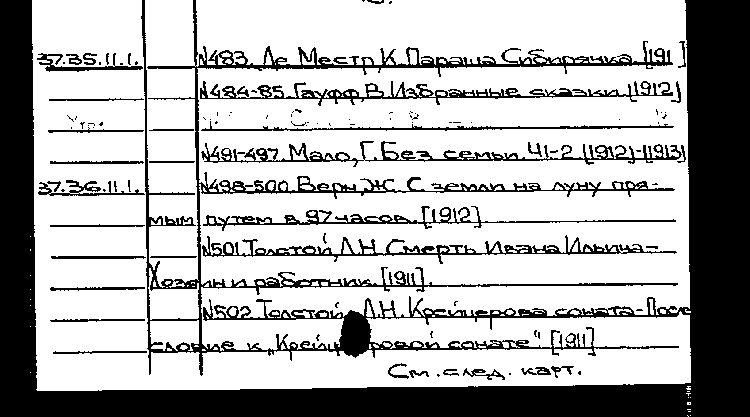 37.35.11.1. N483. Де Местр, К. Параша Сибирячка. [191 ]
N484-85. Гауфф, В. Избранные сказки. [1912]
N491-497. Мало, Г. Без семьи. Ч1-2 [1912]-[1913]
37.36.11.1. N498-500. Верн, Ж. С земли на луну пря-
мым путем в 97 часов. [1912]
N501. Толстой, Л.Н. Смерть Ивана Ильича-
Хозяин и работник. [1911].
N502. Толстой, Л.Н. Крейцерова соната-После
словие к „Крейц ровой сонате" [1911]
См. след. карт.